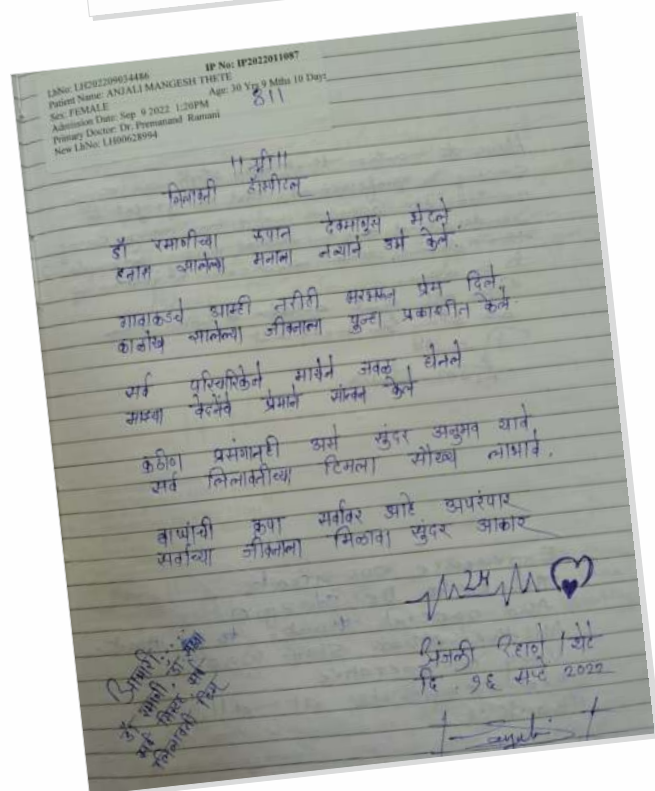 IP No: IP2022011087
LhNo: LH202209034486
Patient Name: ANJALI MANGESH THETE
Sex: FEMALE Age: 30 Yrs 9 Mths 10 Days
Admission Date: Sep 9 2022 1:20PM
811
Primary Doctor: Dr. Premanand Ramani
New LhNo: LH00628994
।। श्री ।।
लिलावती हॉस्पीटल
डॉ रमाणीच्या रुपात देवमाणुस भेटले
हताश झालेल्या मनाला नव्याने उभे केले.
गावाकडचे आम्ही तरीही भरभरून प्रेम दिले.
काळोख झालेल्या जीवनाला पुन्हा प्रकाशीत केले.
सर्व परिचारिकेने मायेने जवळ घेतले
माझ्या वेदनेचे प्रेमाने सांत्वन केले
कठीण प्रसंगातही असे सुंदर अनुभव यावे
सर्व लिलावतीच्या टिमला सौख्य लाभावे.
बाप्पांची कृपा सर्वांवर आहे अपरंपार
सर्वांच्या जीवनाला मिळावा सुंदर आकार
अंजली रहाणे / थेटे
दि. १६ सप्टे 2022
आभारी...
डॉ रमाणी
सर्व सिस्टर
लिलावती टिम